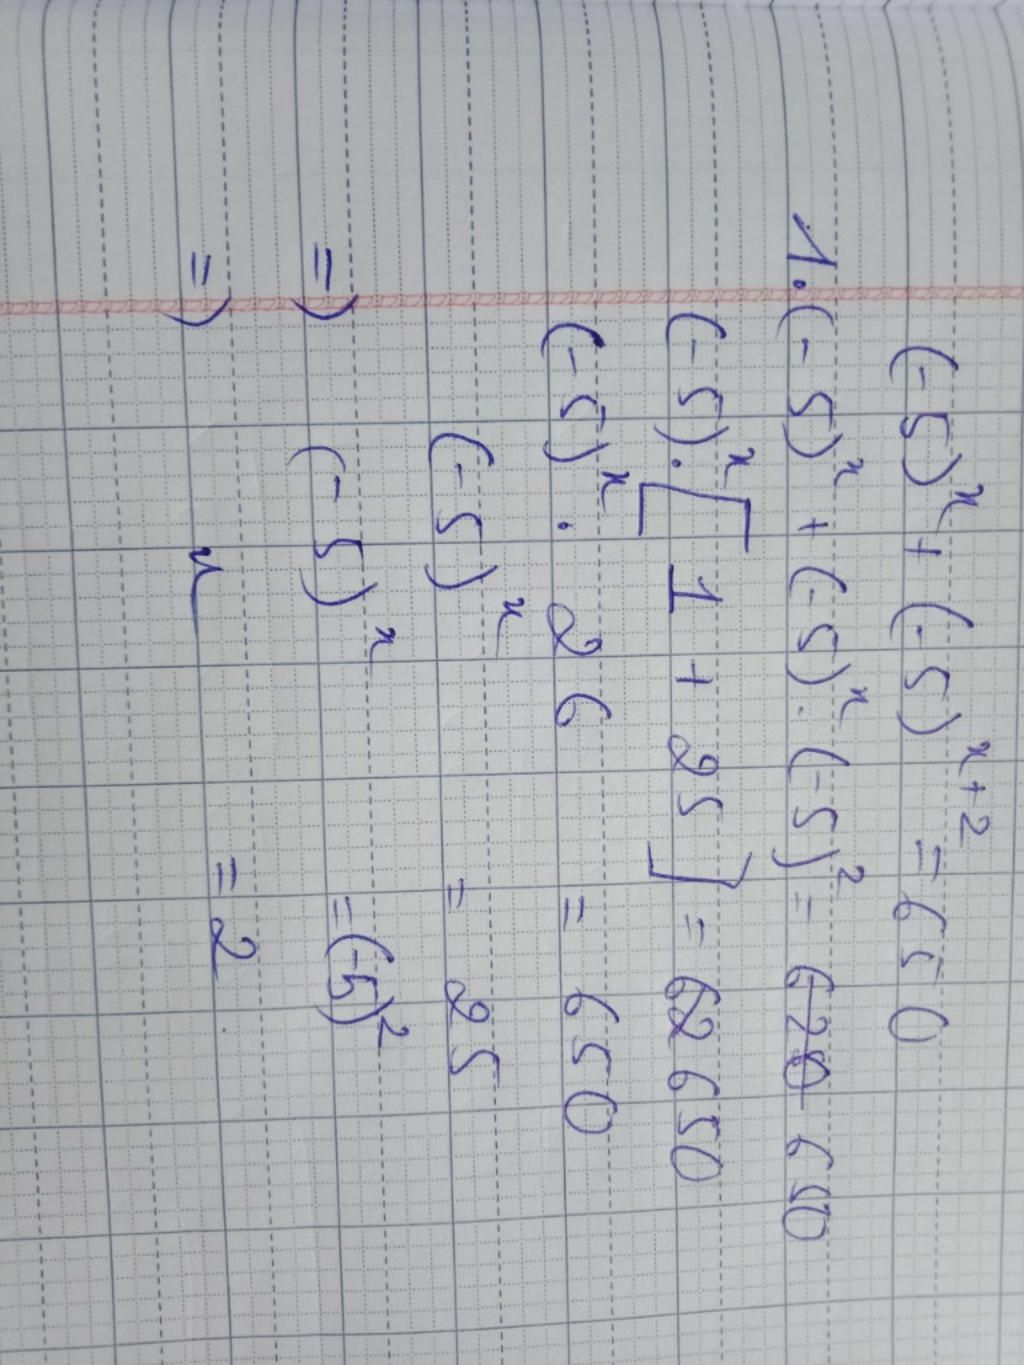 (-5)^x + (-5)^{x+2} = 650
1.(-5)^x + (-5)^x . (-5)^2 = 650
(-5)^x . [1 + 25] = 650
(-5)^x . 26 = 650
(-5)^x = 25
=> (-5)^x = (-5)^2
=> x = 2